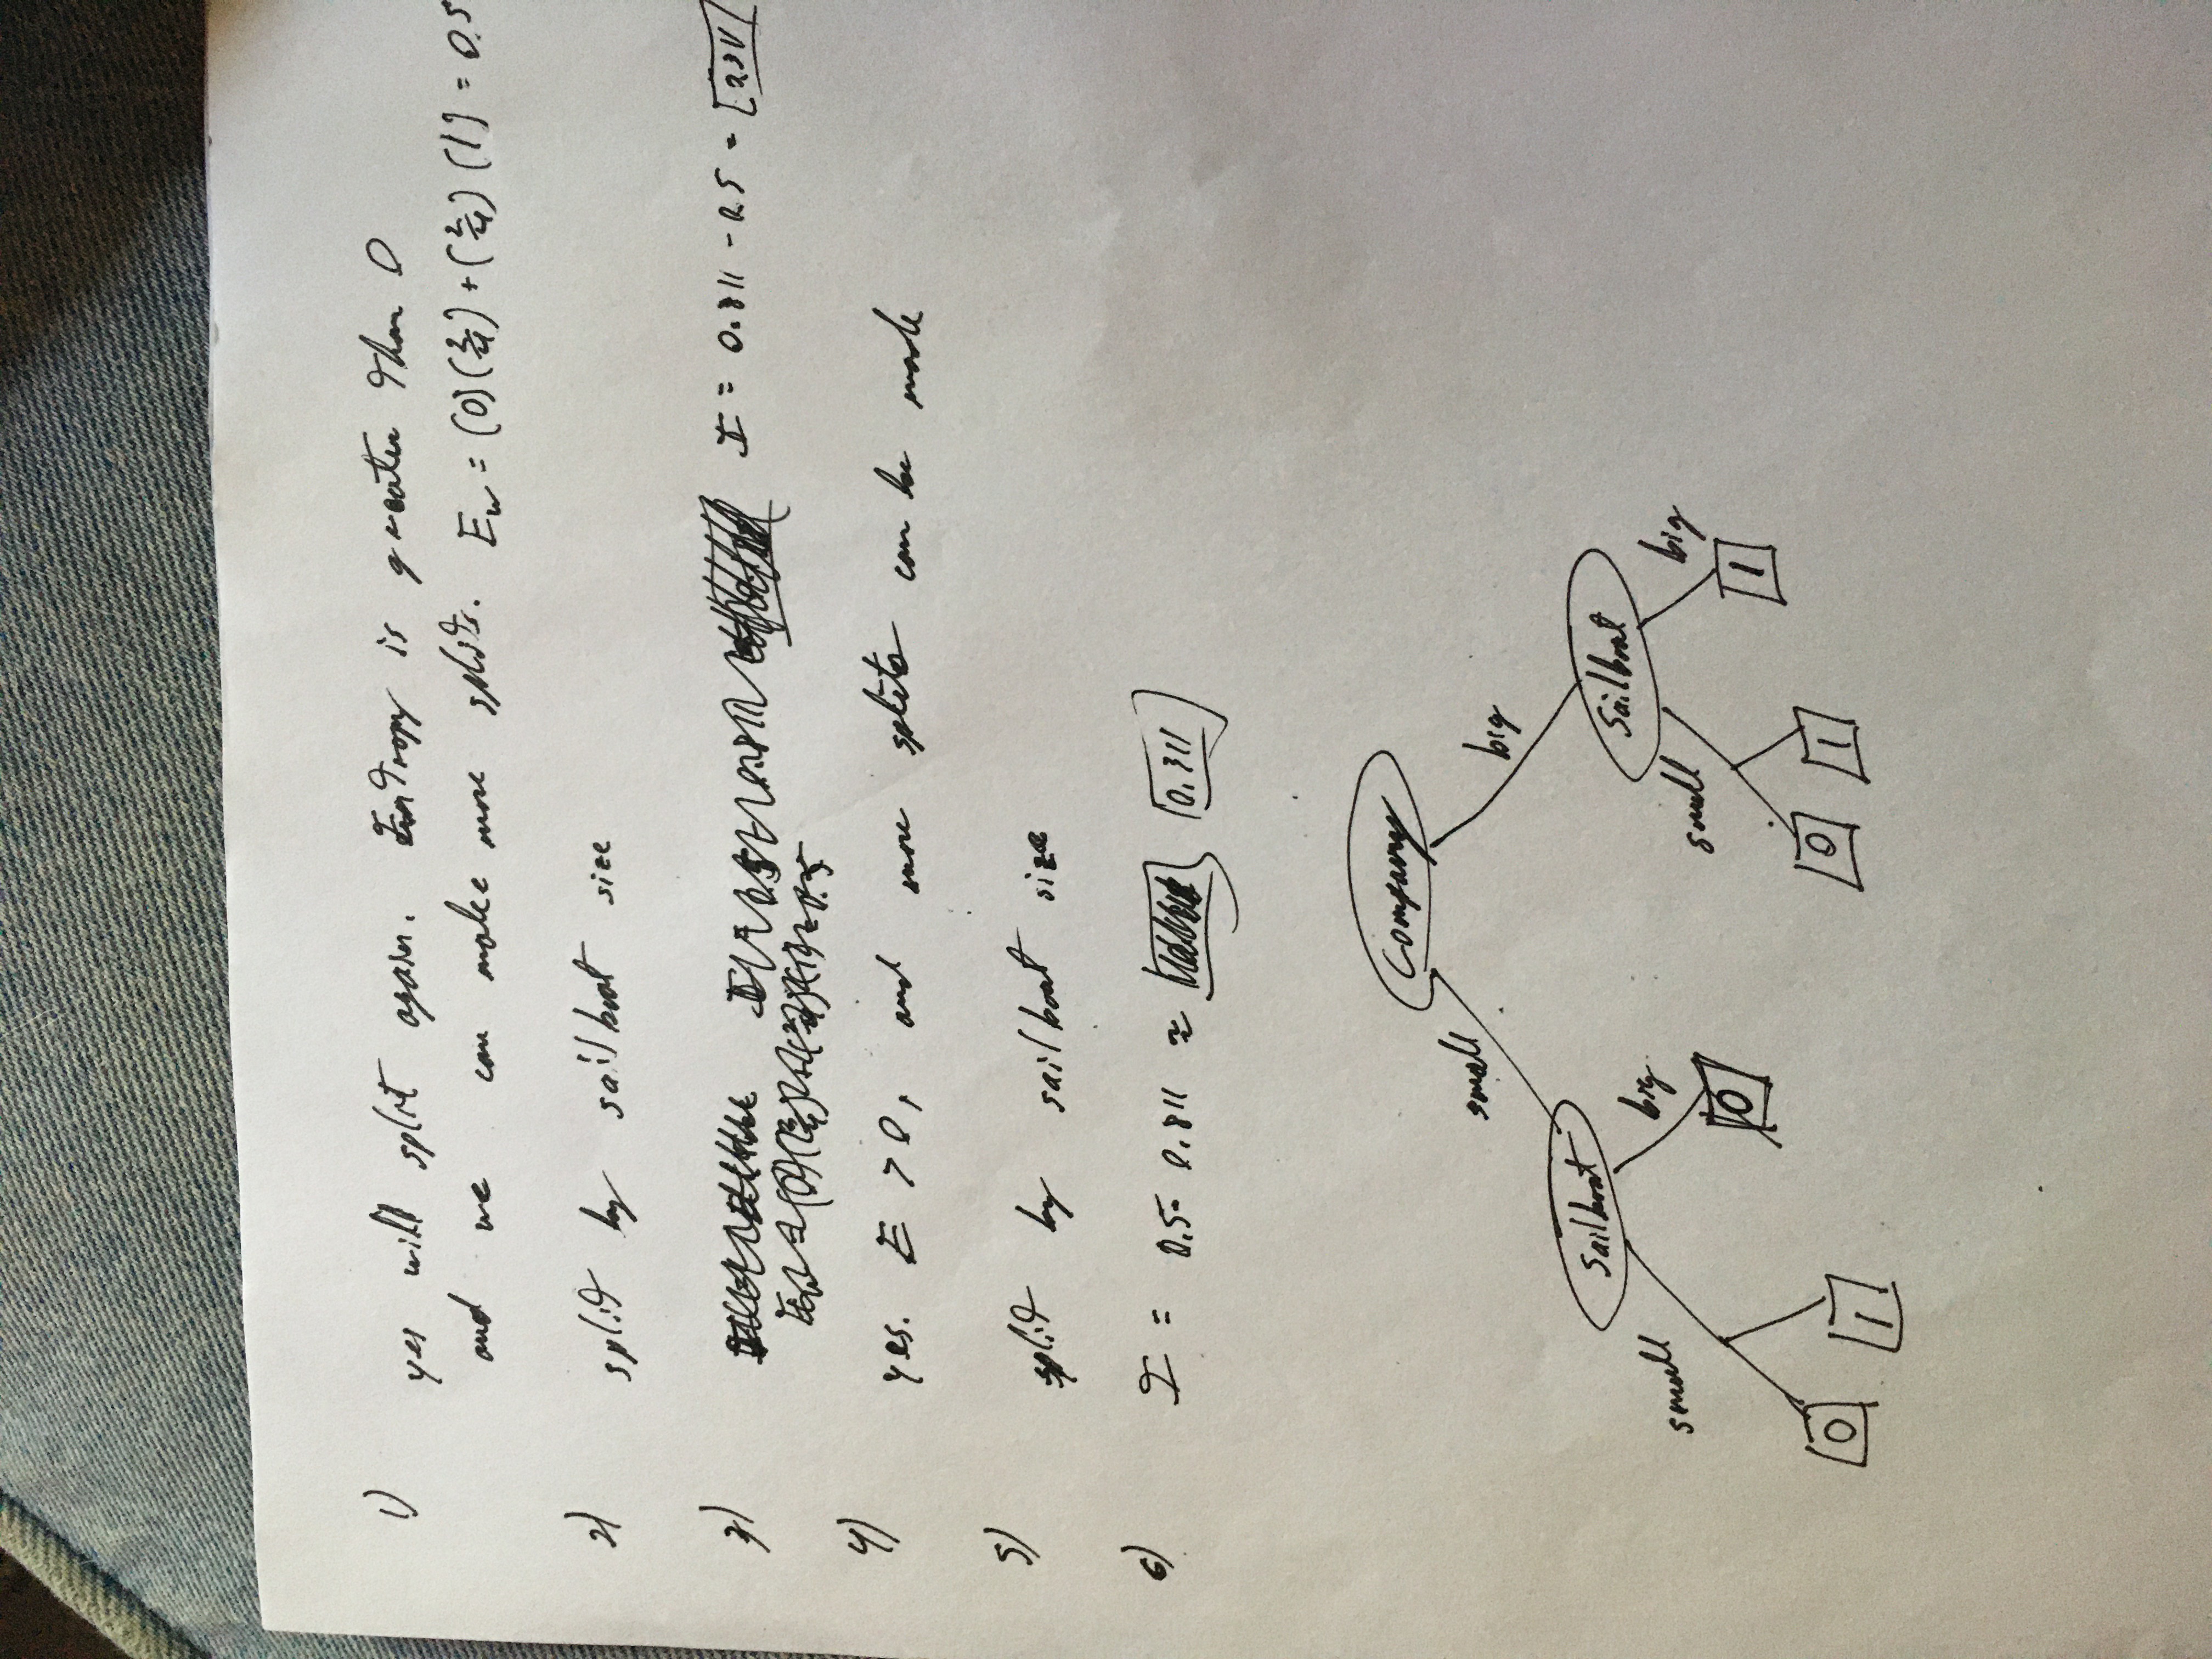 1) yes will split again. Entropy is greater than 0
and we can make more splits. Ew = (0)(2/4) + (2/4)(1) = 0.5
2) split by sailboat size
3) I = 0.811 - 0.5 =
4) yes. E > 0, and more splits can be made
5) split by sailboat size
6) I = 0.5 - 0.811 ≈ 0.311
Company
small big
Sailboat Sailboat
small big small big
0 1
0 1 0 1